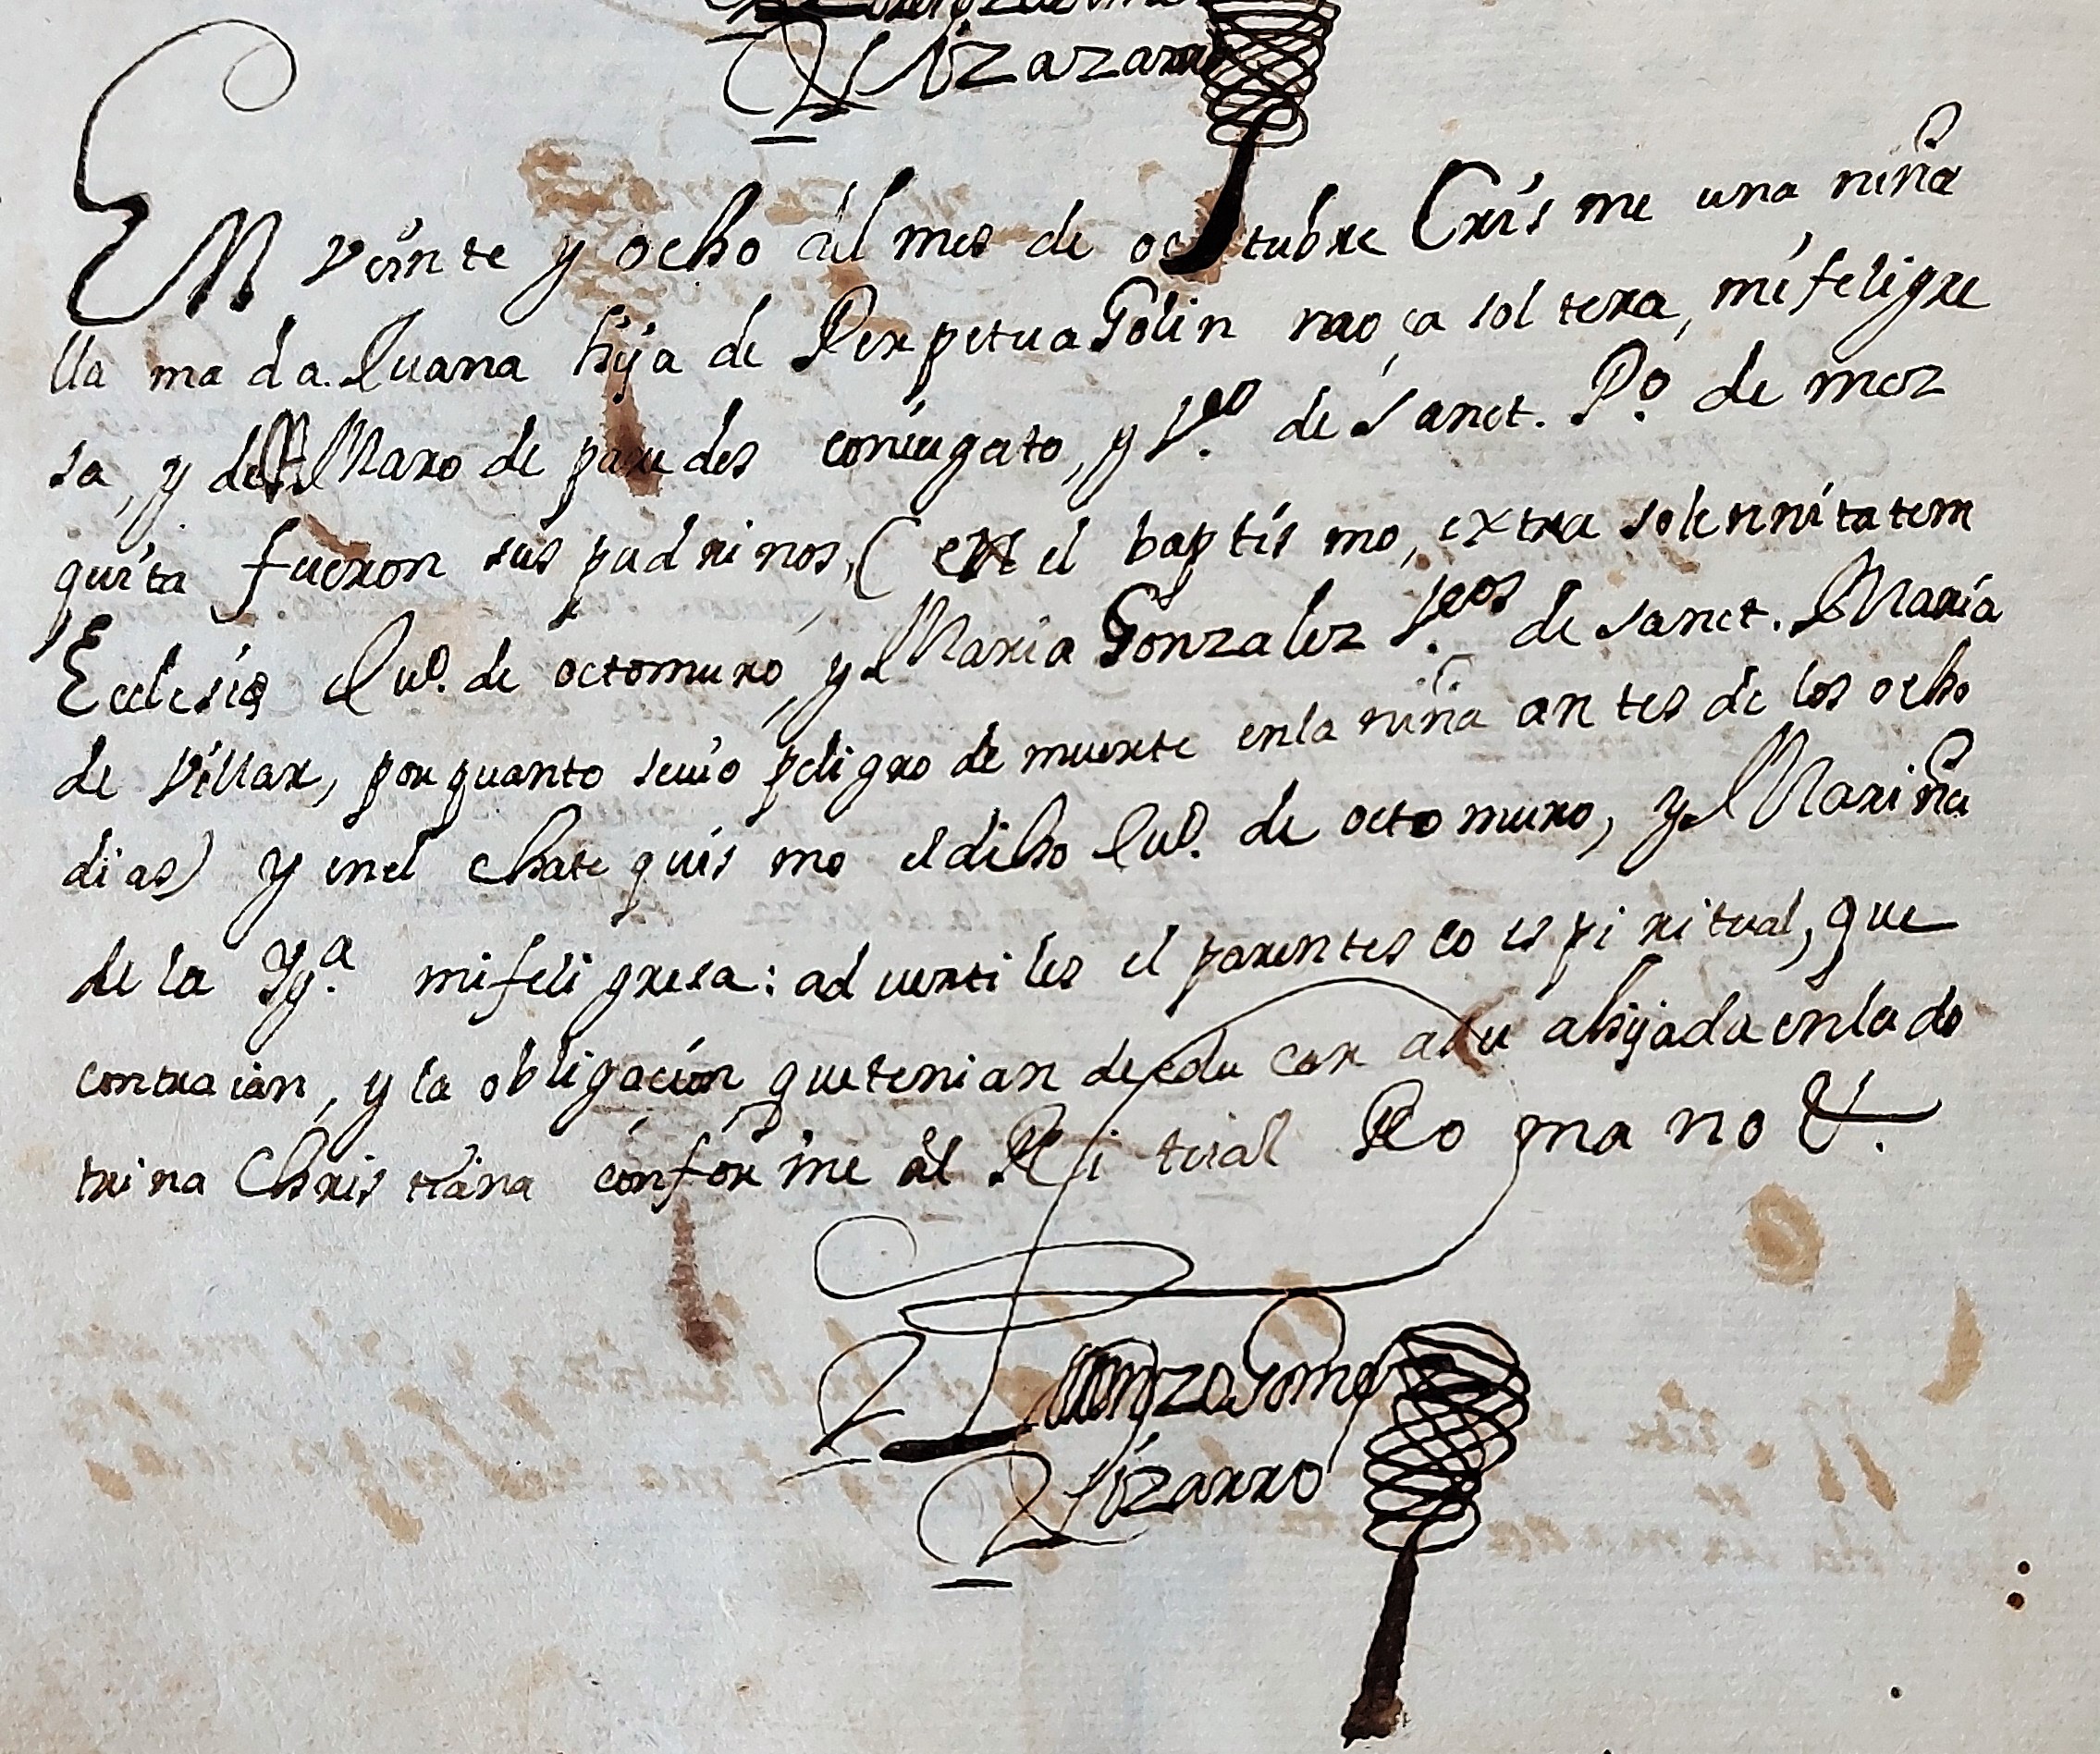 Pizarro
En veinte y ocho del mes de octubre Crisme una niña
llamada Juana hija de Perpetua Golin moça soltera, mi feligre
sa, y de Maro de paredes coniugato, y Vº. de Sanct. Pº. de mez
quita fueron sus padrinos, (en el baptismo, extra solennitatem
Ecclesię Juº. de octomuro, y Maria Gonzalez Vºˢ de Sanct. Maria
de Villar, por quanto seuio peligro de muerte enla niña antes de los ocho
dias) y enel chatequismo el dicho Juº. de octomuro, y Mariña
de la Ygª. mi feligresa: aduertiles el parentesco espiritual, que
contraian, y la obligación quetenian de educar asu ahijada enlado
trina Christiana conforme al Ritual Romano &.
Lorenzo Gomez
Pizarro